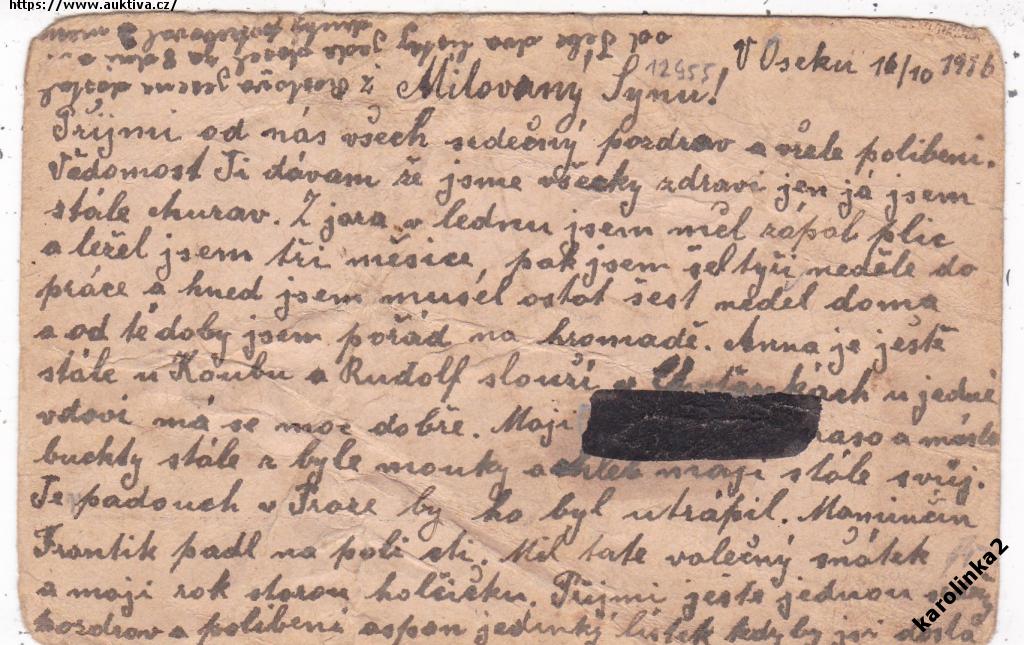 https://www.auktiva.cz/
od Tebe dva lístky
12955
V Oseku 16/10 1916
Milovaný Synu!
Přijmi od nás všech srdečný pozdrav a vřele polibeni.
Vědomost Ti dávam že jsme všecky zdravi jen já jsem
stále churav. Z jara v lednu jsem měl zápal plic
a ležel jsem tři měsice, pak jsem šel tyři neděle do
práce a hned jsem musel ostat šest neděl doma
a od té doby jsem pořád na hromadě. Anna je ještě
stále u Koubu a Rudolf slouži u jedné
vdovi má se moc dobře. Maji maso a máslo
buchty stále z byle mouky a chleb maji stále svůj.
Te padouch v Praze by ho byl utrápil. Maminčin
Frantik padl na poli cti. Měl tate valečný sňátek
a maji rok starou holčičku. Přijmi ještě jednou
pozdrav a polibeni aspon jedinký lístek kdyby jsi dostal
karolinka2